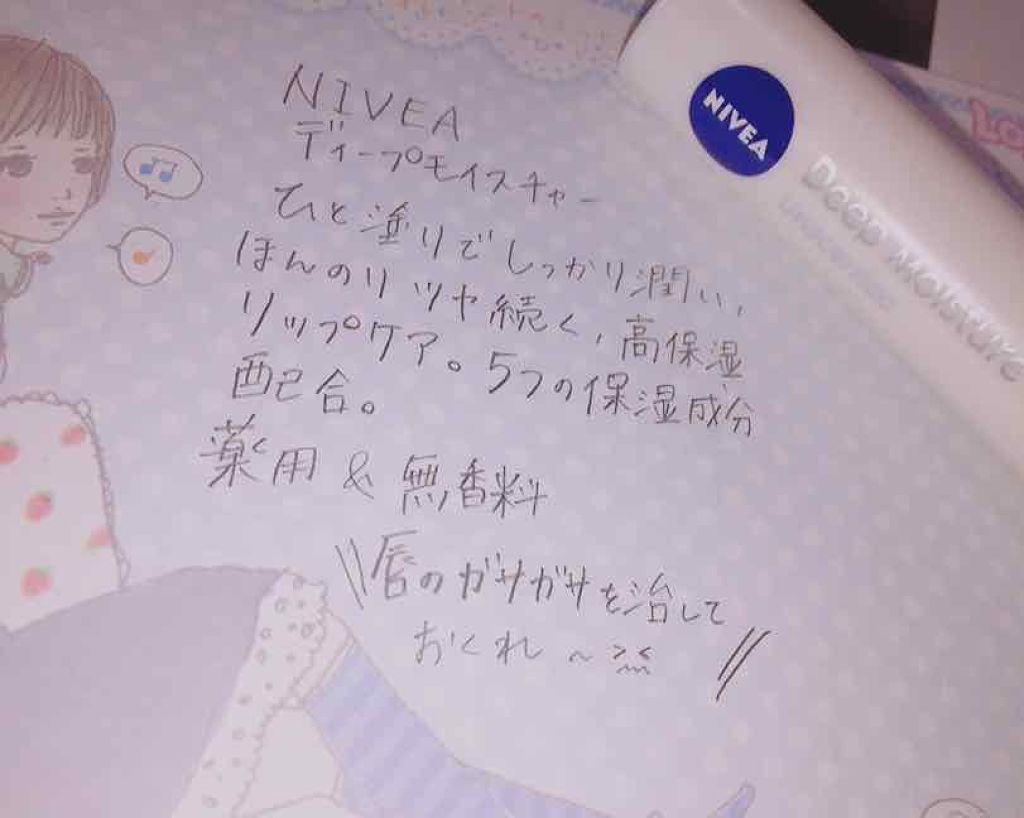 NIVEA
ディープモイスチャー
ひと塗りでしっかり潤い,
ほんのりツヤ続く,高保湿
リップケア。5つの保湿成分
配合。
薬用 & 無香料
\\唇のガサガサを治して
おくれ~ >< //
NIVEA
Deep Moisture
Lo